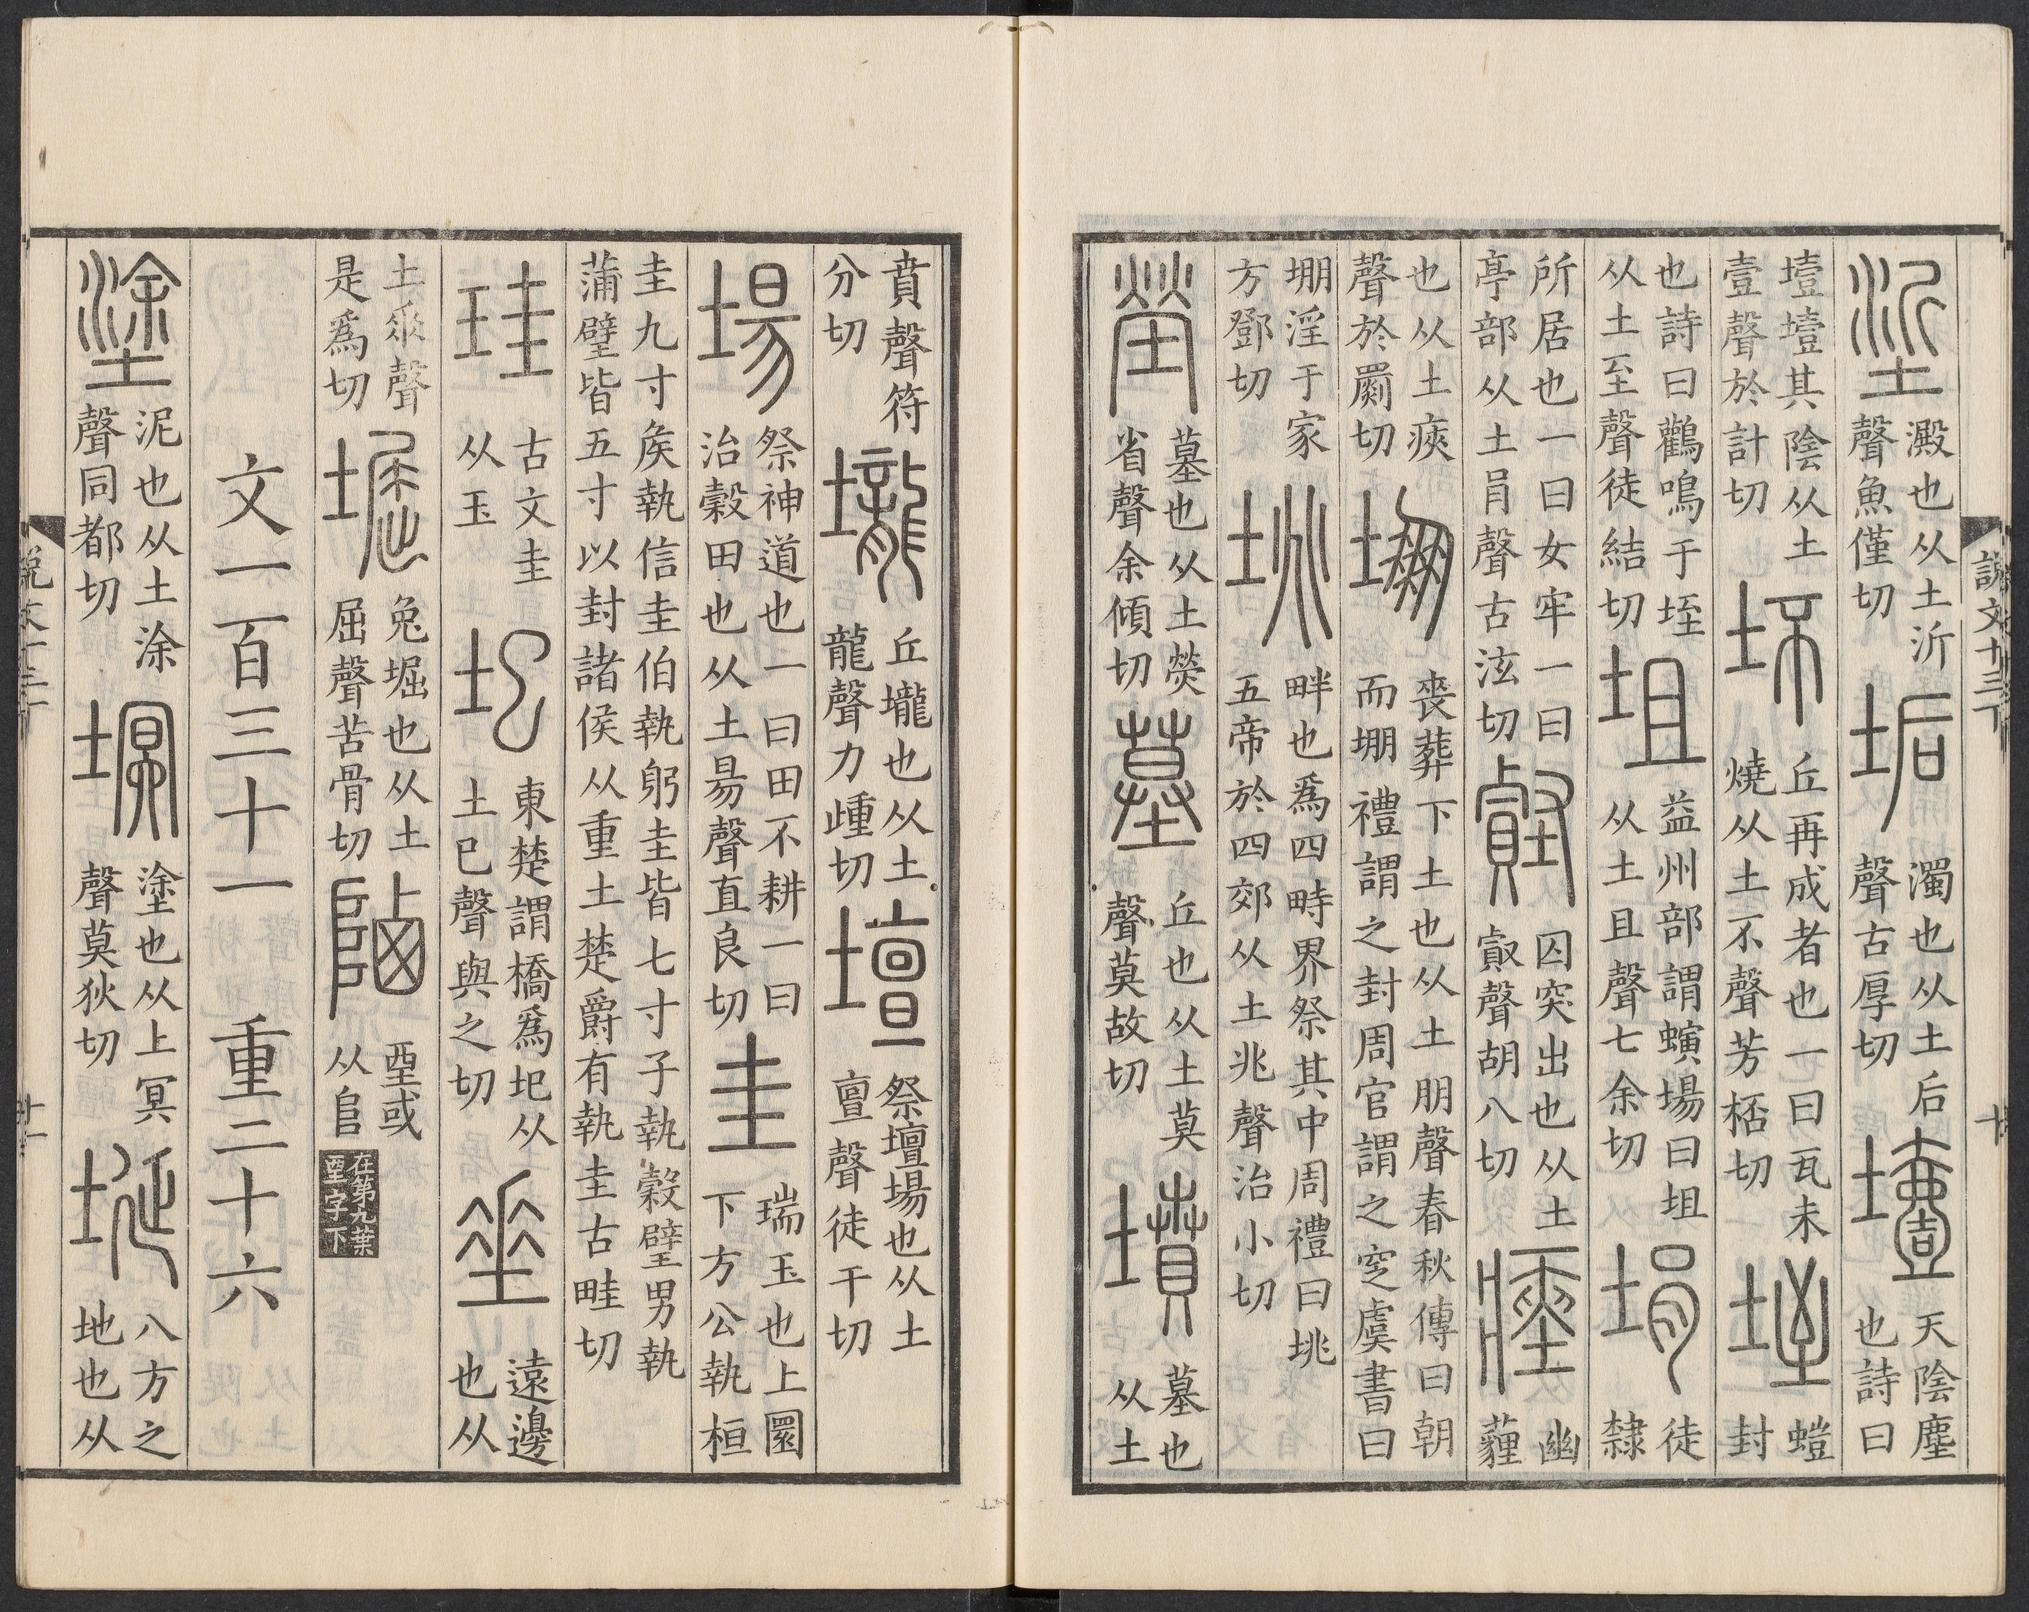 說文十三下
十
垽 澱也从土沂聲魚僅切 垢 濁也从土后聲古厚切 㙪 天陰塵也詩曰
㙪㙪其陰从土壹聲於計切 坏 丘再成者也一曰瓦未燒从土不聲芳桮切 垤 螘封
也詩曰鸛鳴于垤从土至聲徒結切 坥 益州部謂螾場曰坥从土且聲七余切 埍 徒隸
所居也一曰女牢一曰亭部从土肙聲古泫切 囚突出也从土㕡聲胡八切 瘞 幽薶
也从土㾜聲於罽切 堋 喪葬下土也从土朋聲春秋傳曰朝而堋禮謂之封周官謂之窆虞書曰
堋淫于家方鄧切 垗 畔也爲四畤界祭其中周禮曰垗五帝於四郊从土兆聲治小切
塋 墓也从土熒省聲余傾切 墓 丘也从土莫聲莫故切 墳 墓也从土
賁聲符分切 壠 丘壠也从土龍聲力歱切 壇 祭壇場也从土亶聲徒干切
場 祭神道也一曰田不耕一曰治穀田也从土昜聲直良切 圭 瑞玉也上圜下方公執桓
圭九寸矦執信圭伯執躬圭皆七寸子執穀璧男執蒲璧皆五寸以封諸侯从重土楚爵有執圭古畦切
珪 古文圭从玉 圯 東楚謂橋爲圯从土巳聲與之切 垂 遠邊也从
土𠂹聲是爲切 堀 兔堀也从土屈聲苦骨切 垔或从𨸏 在第九葉垔字下
文一百三十一 重二十六
塗 泥也从土涂聲同都切 塓 塗也从土冥聲莫狄切 埏 八方之地也从
說文十三下
十一